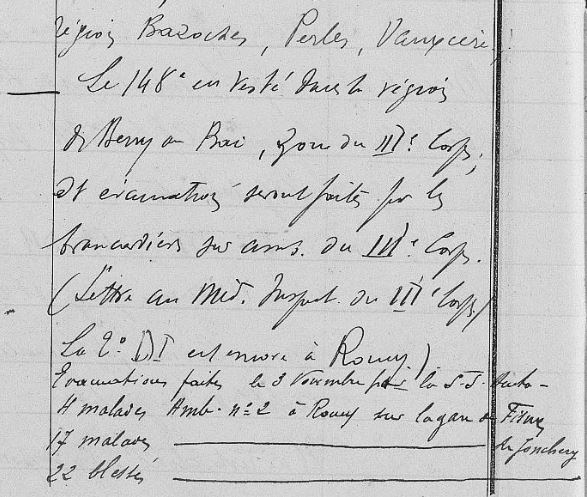 région Bazoches, Perles, Vauxcéré,
Le 148e est resté dans la région
de Berry au Bac, zone du IIIe Corps,
et évacuations seront faites par les
brancardiers sur amb. du IIIe Corps.
(Lettre au Méd. Inspect. du IIIe Corps)
La 2e DI est encore à Roucy)
Evacuations faites le 3 Novembre par la S.S. Auto-
4 malades Amb. n°2 à Roucy sur la gare de Fismes
17 malades de Jonchery
22 blessés